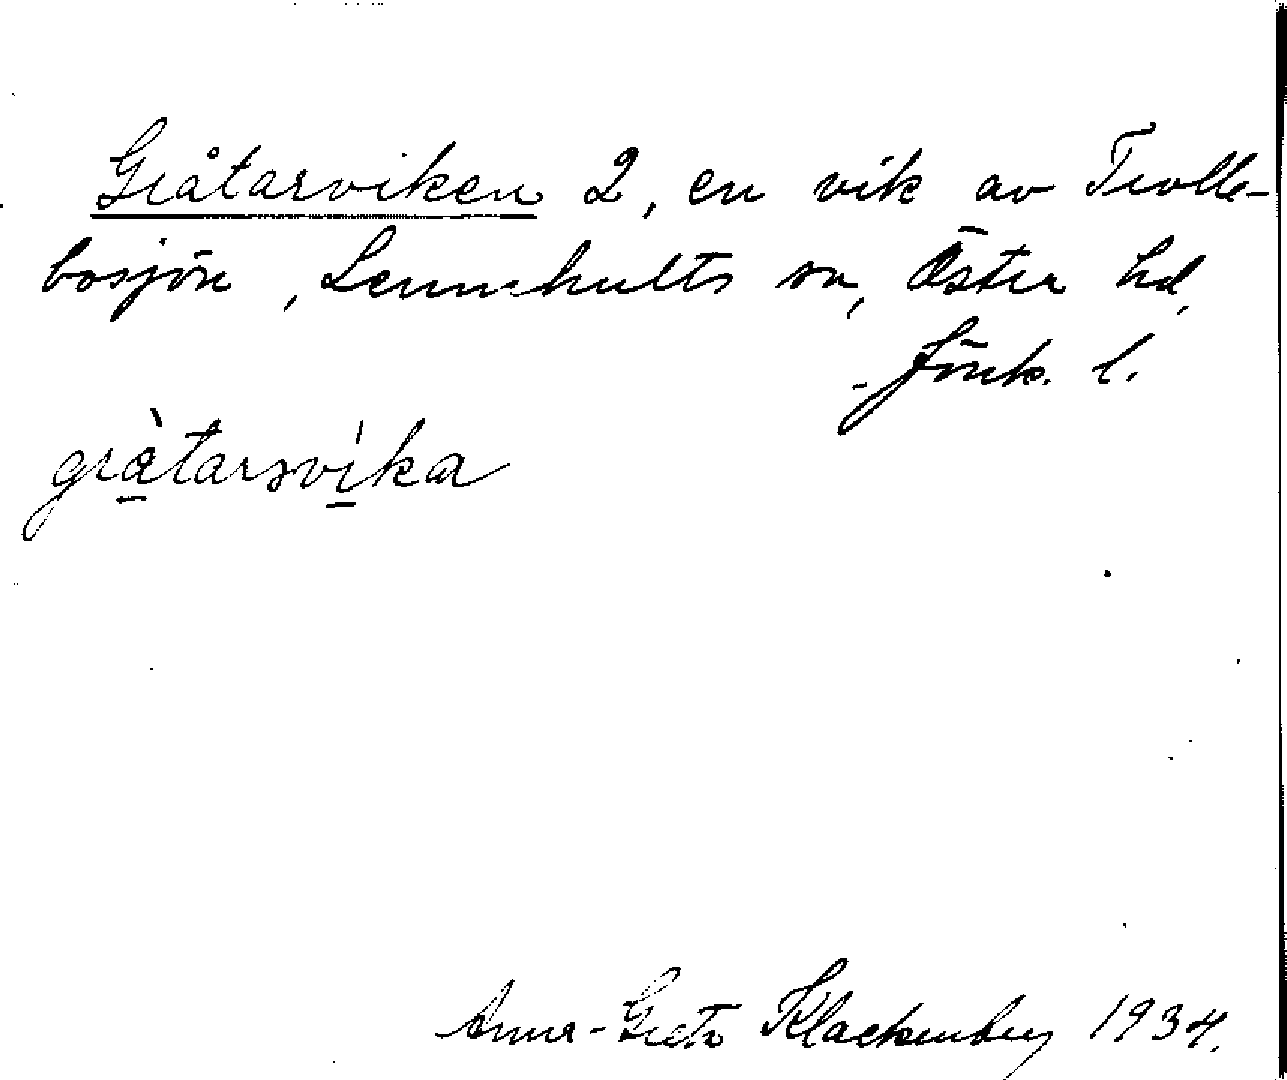 Gråtarviken 2, en vik av Trolle-
bosjön, Lemnhults sn, Östra hd,
Jönk. l.
gràtarsvika
Anna-Greta Klackenberg 1934.